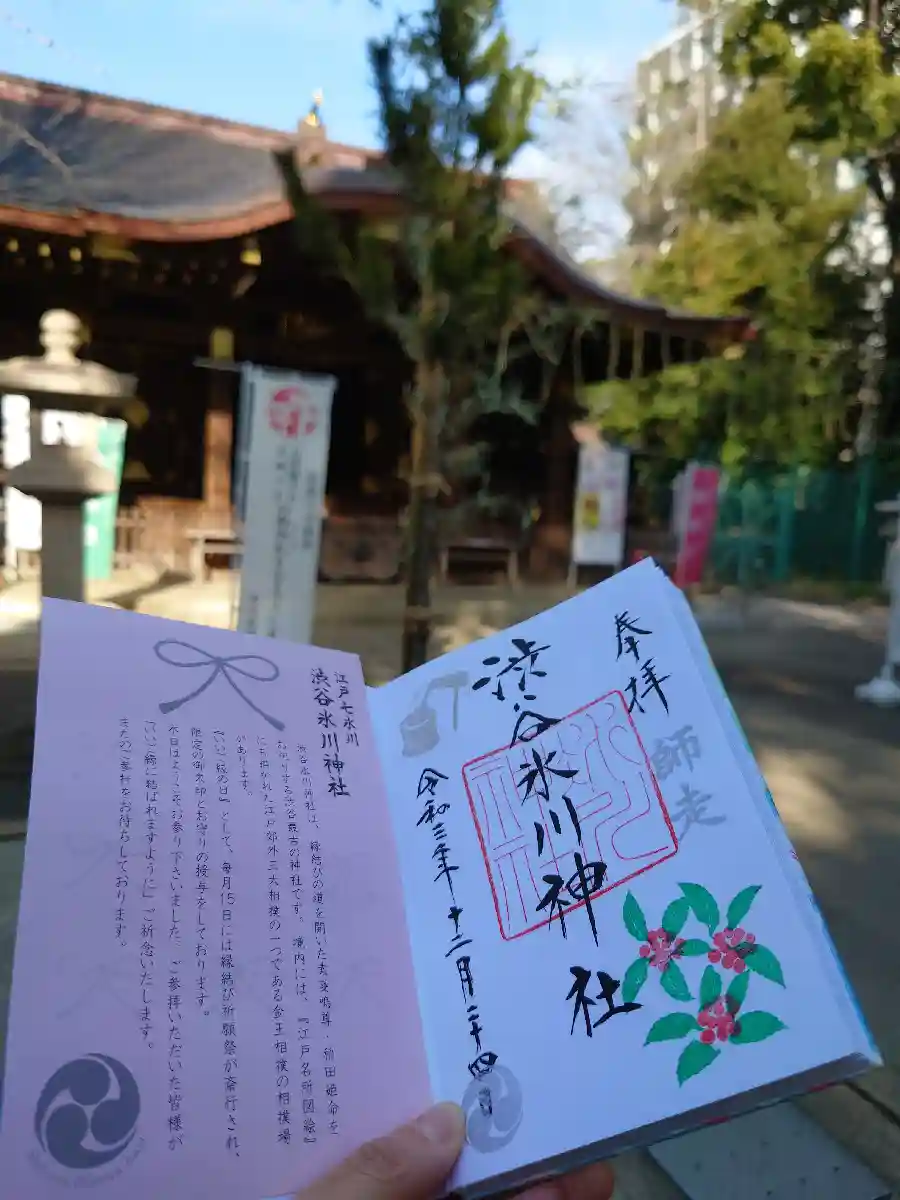 奉拝
師走
渋谷氷川神社
令和三年十二月二十四日
江戸七氷川
渋谷氷川神社
渋谷氷川神社は、縁結びの道を開いた素戔嗚尊・稲田姫命を
お祀りする渋谷最古の神社です。 境内には、『江戸名所図絵』
にも描かれた江戸郊外三大相撲の一つである金王相撲の相撲場
があります。
『いいご縁の日』として、毎月15日には縁結び祈願祭が斎行され、
限定の御朱印とお守りの授与をしております。
本日はようこそお参り下さいました。ご参拝いただいた皆様が
「いいご縁に結ばれますように」ご祈念いたします。
またのご参拝をお待ちしております。